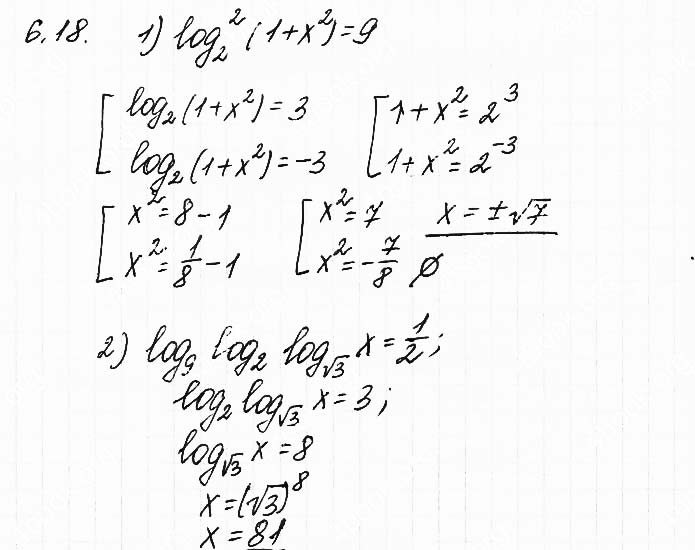 6.18. 1) log₂²(1+x²)=9
[ log₂(1+x²)=3 [ 1+x²=2³
log₂(1+x²)=-3 1+x²=2⁻³
[ x²=8-1 [ x²=7 x=±√7
x²=1/8-1 x²=-7/8 ∅
2) log₉ log₂ log_√3 x=1/2;
log₂ log_√3 x=3;
log_√3 x=8
x=(√3)⁸
x=81